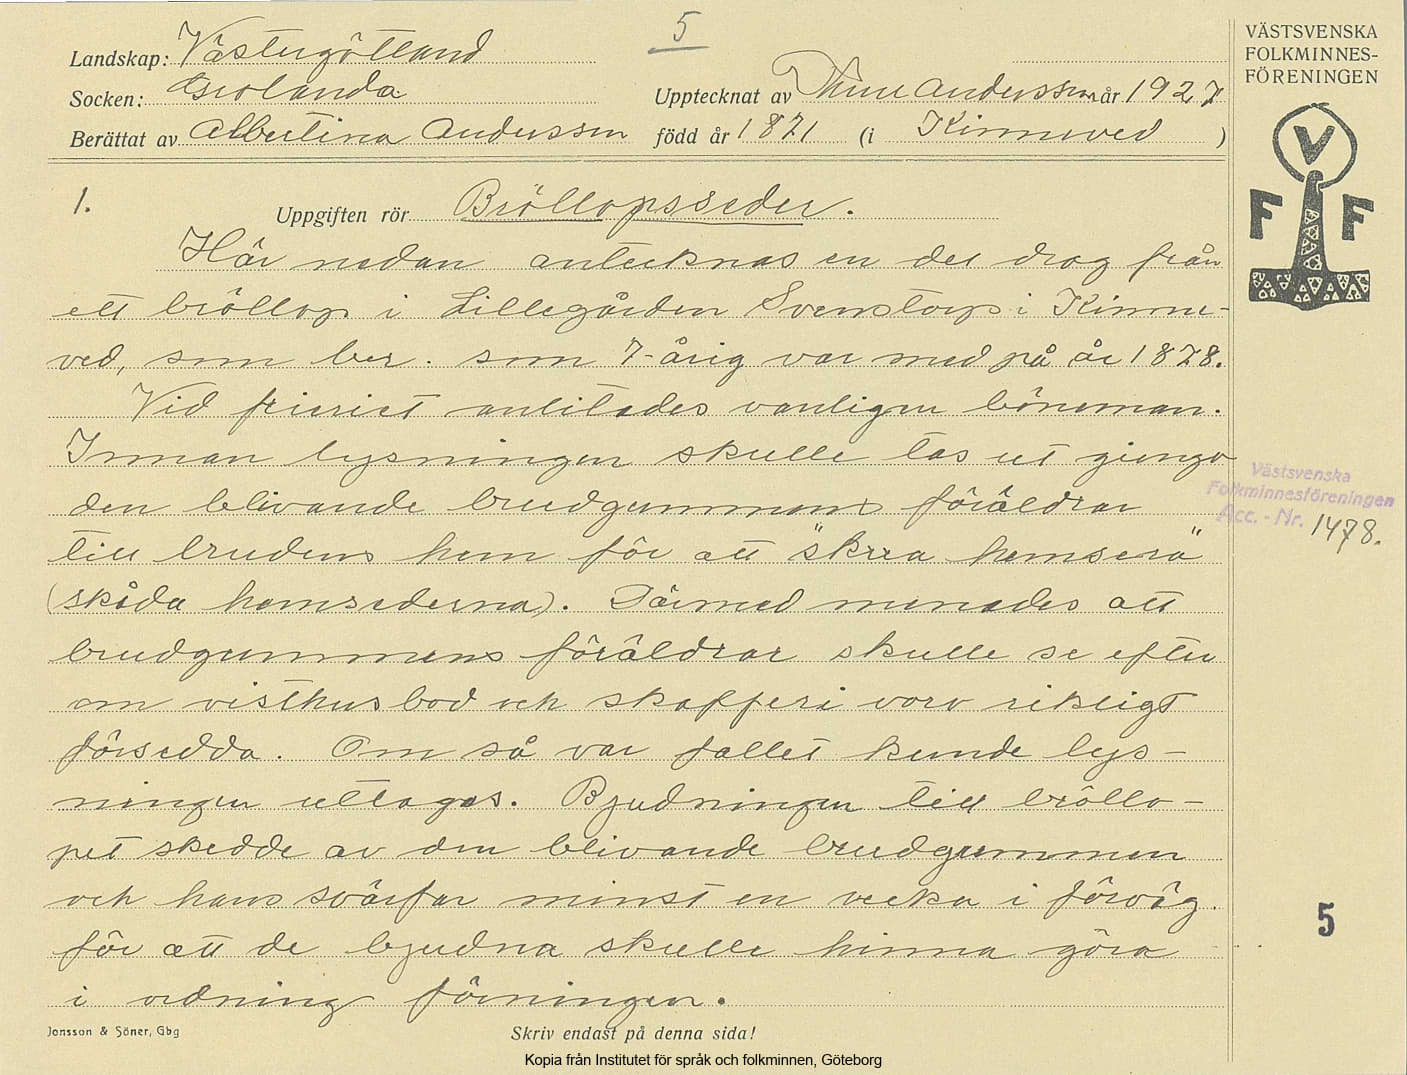 5
VÄSTSVENSKA
FOLKMINNES-
FÖRENINGEN
Landskap: Västergötland
Socken: Grolanda
Upptecknat av Thure Andersson år 1927
Berättat av Albertina Andersson född år 1871 (i Kinneved )
V
F F
1.
Uppgiften rör Bröllopsseder.
Här nedan antecknas en del drag från
ett bröllop i Lillegården Svenstorp i Kinne-
ved, som ber. som 7-årig var med på år 1878.
Vid frieriet anlitades vanligen böneman.
Innan lysningen skulle tas ut gingo
den blivande brudgummens föräldrar
till brudens hem för att "skrea hemsera"
(skåda hemsederna). Därmed menades att
brudgummens föräldrar skulle se efter
om visthusbod och skafferi voro rikligt
försedda. Om så var fallet kunde lys-
ningen uttagas. Bjudningen till bröllo-
pet skedde av den blivande brudgummen
och hans svärfar minst en vecka i förväg
för att de bjudna skulle hinna göra
i ordning förningen.
Västsvenska
Folkminnesföreningen
Acc. - Nr. 1478.
5
Jonsson & Söner, Gbg
Skriv endast på denna sida!
Kopia från Institutet för språk och folkminnen, Göteborg